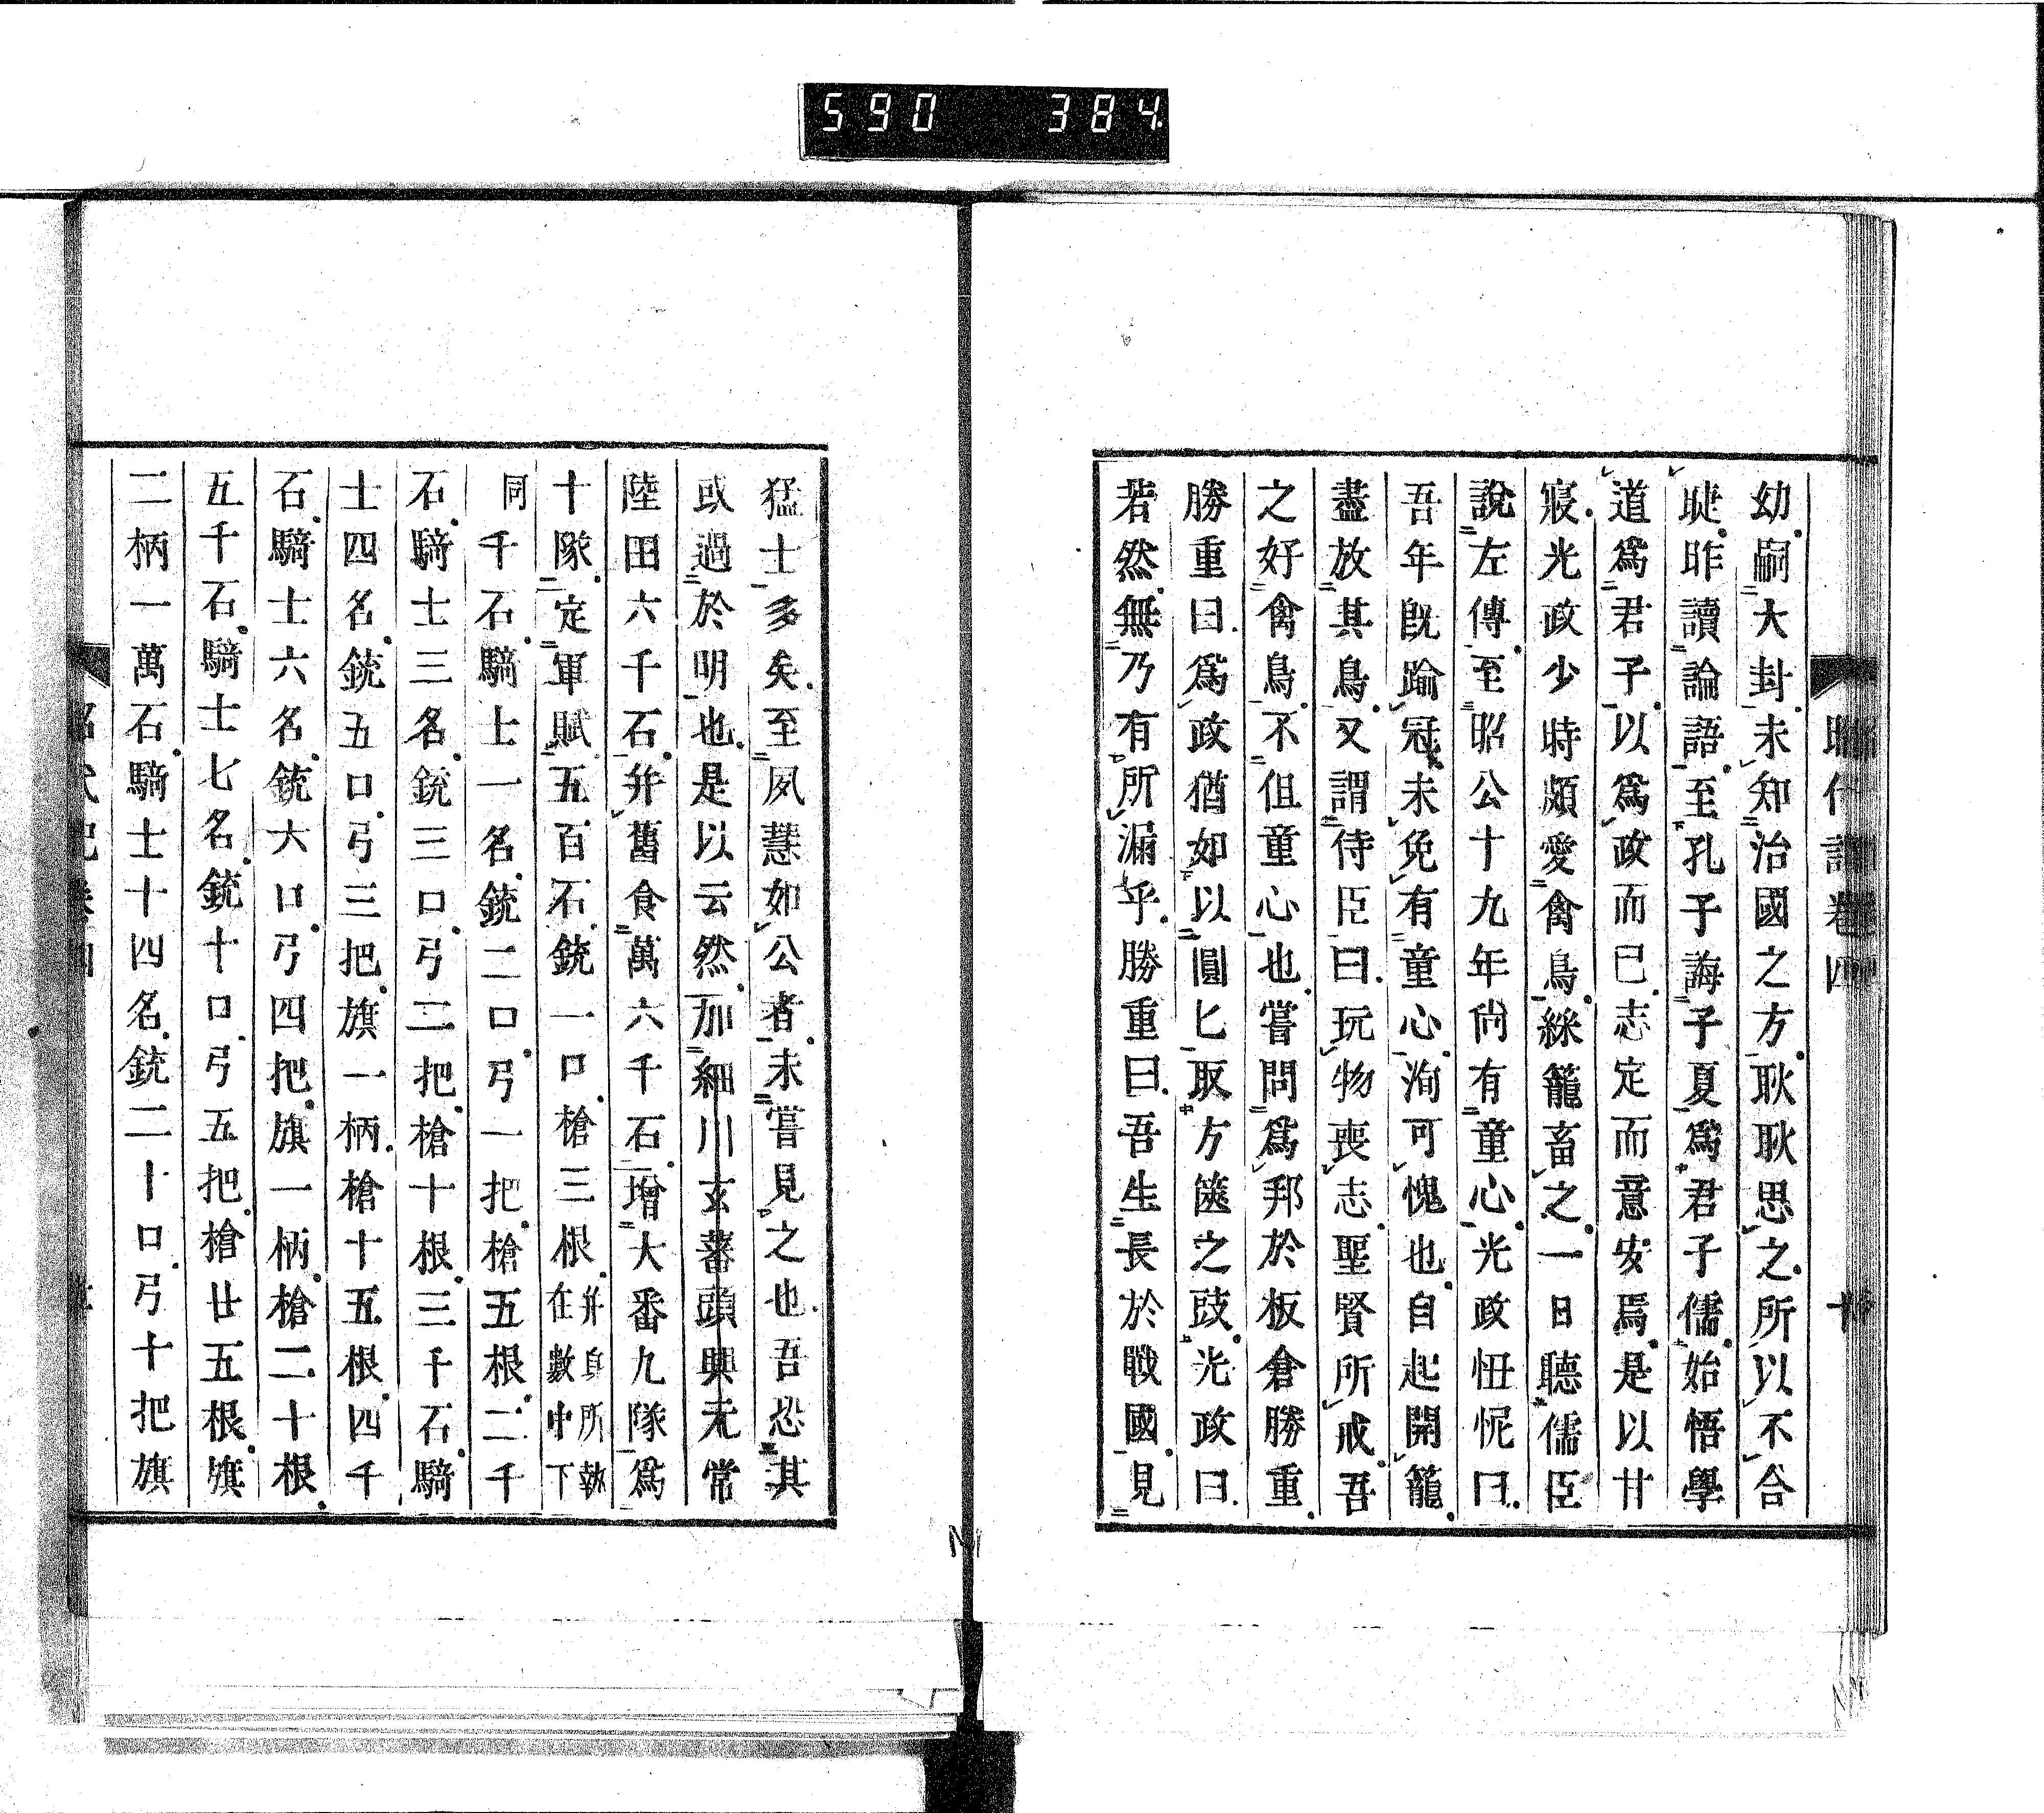 590 384
昭代記卷四 十
幼嗣大封未知治國之方耿耿思之所以不合
睫昨讀論語至孔子誨子夏爲君子儒始悟學
道爲君子以爲政而已志定而意安焉是以甘
寢光政少時頗愛禽鳥綵籠畜之一日聽儒臣
說左傳至昭公十九年尚有童心光政忸怩曰
吾年旣踰冠未免有童心洵可愧也自起開籠
盡放其鳥又謂侍臣曰玩物喪志聖賢所戒吾
之好禽鳥不但童心也嘗問爲邦於板倉勝重
勝重曰爲政猶如以圓匕取方篋之豉光政曰
若然無乃有所漏乎勝重曰吾生長於戰國見
猛士多矣至夙慧如公者未嘗見之也吾恐其
或過於明也是以云然加細川玄蕃頭興元常
陸田六千石幷舊食萬六千石增大番九隊爲
十隊定軍賦五百石銃一口槍三根幷身所執在數中下
同千石騎士一名銃二口弓一把槍五根二千
石騎士三名銃三口弓二把槍十根三千石騎
士四名銃五口弓三把旗一柄槍十五根四千
石騎士六名銃六口弓四把旗一柄槍二十根
五千石騎士七名銃十口弓五把槍廿五根旗
二柄一萬石騎士十四名銃二十口弓十把旗
昭代記卷四